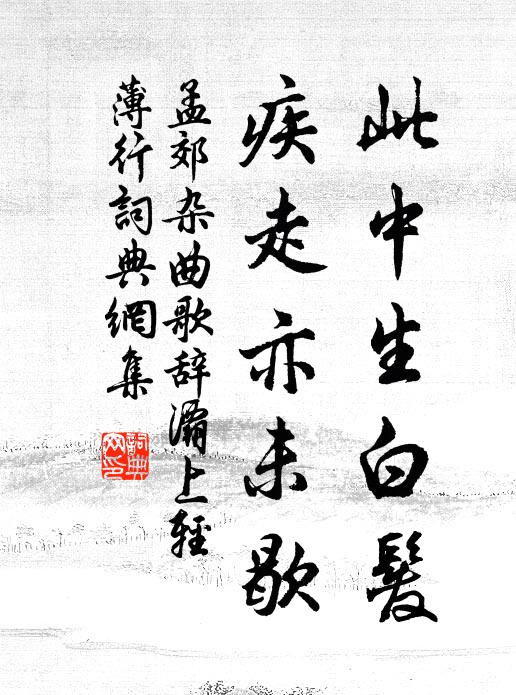 此中生白髮
疾走亦未歇
孟郊杂曲歌辞灞上輕
薄行詞典網集
詞典網印